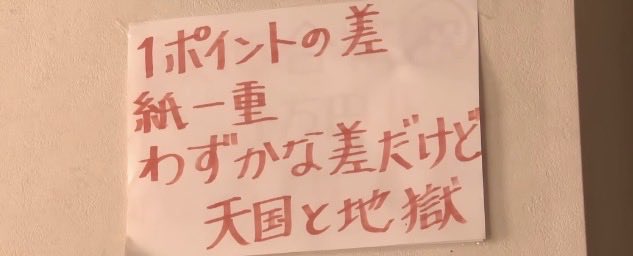 1ポイントの差
紙一重
わずかな差だけど
天国と地獄